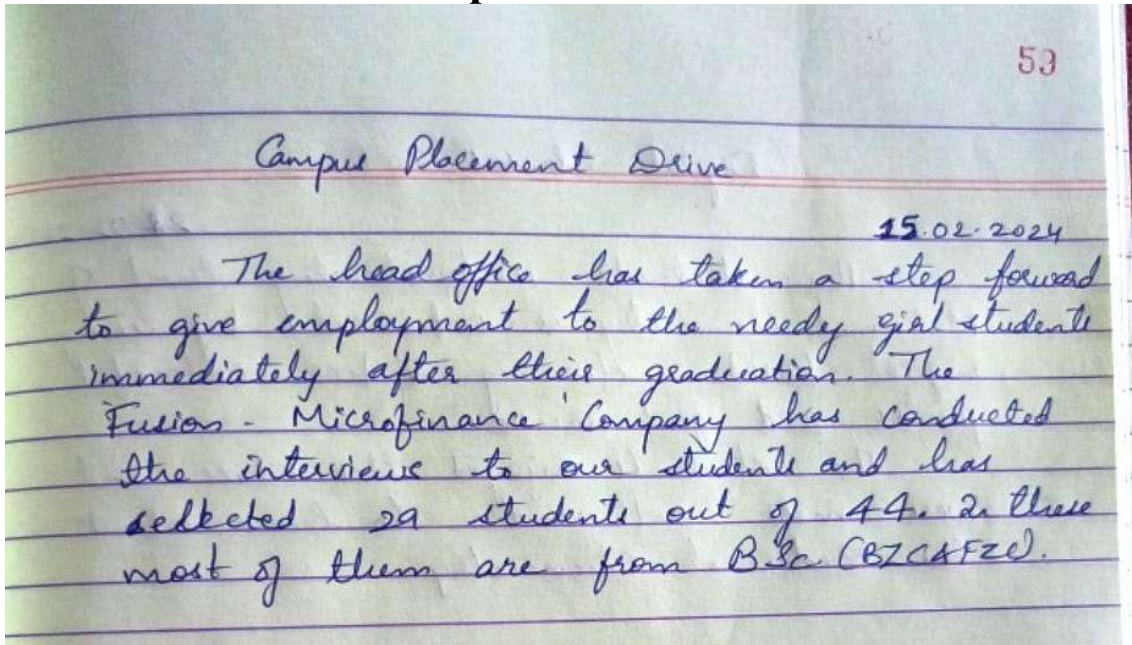 53
Campus Placement Drive
15.02.2024
The head office has taken a step forward
to give employment to the needy girl students
immediately after their graduation. The
Fusion - Microfinance Company has conducted
the interviews to our students and has
selected 29 students out of 44. In these
most of them are from B.Sc (BZC&FZC).